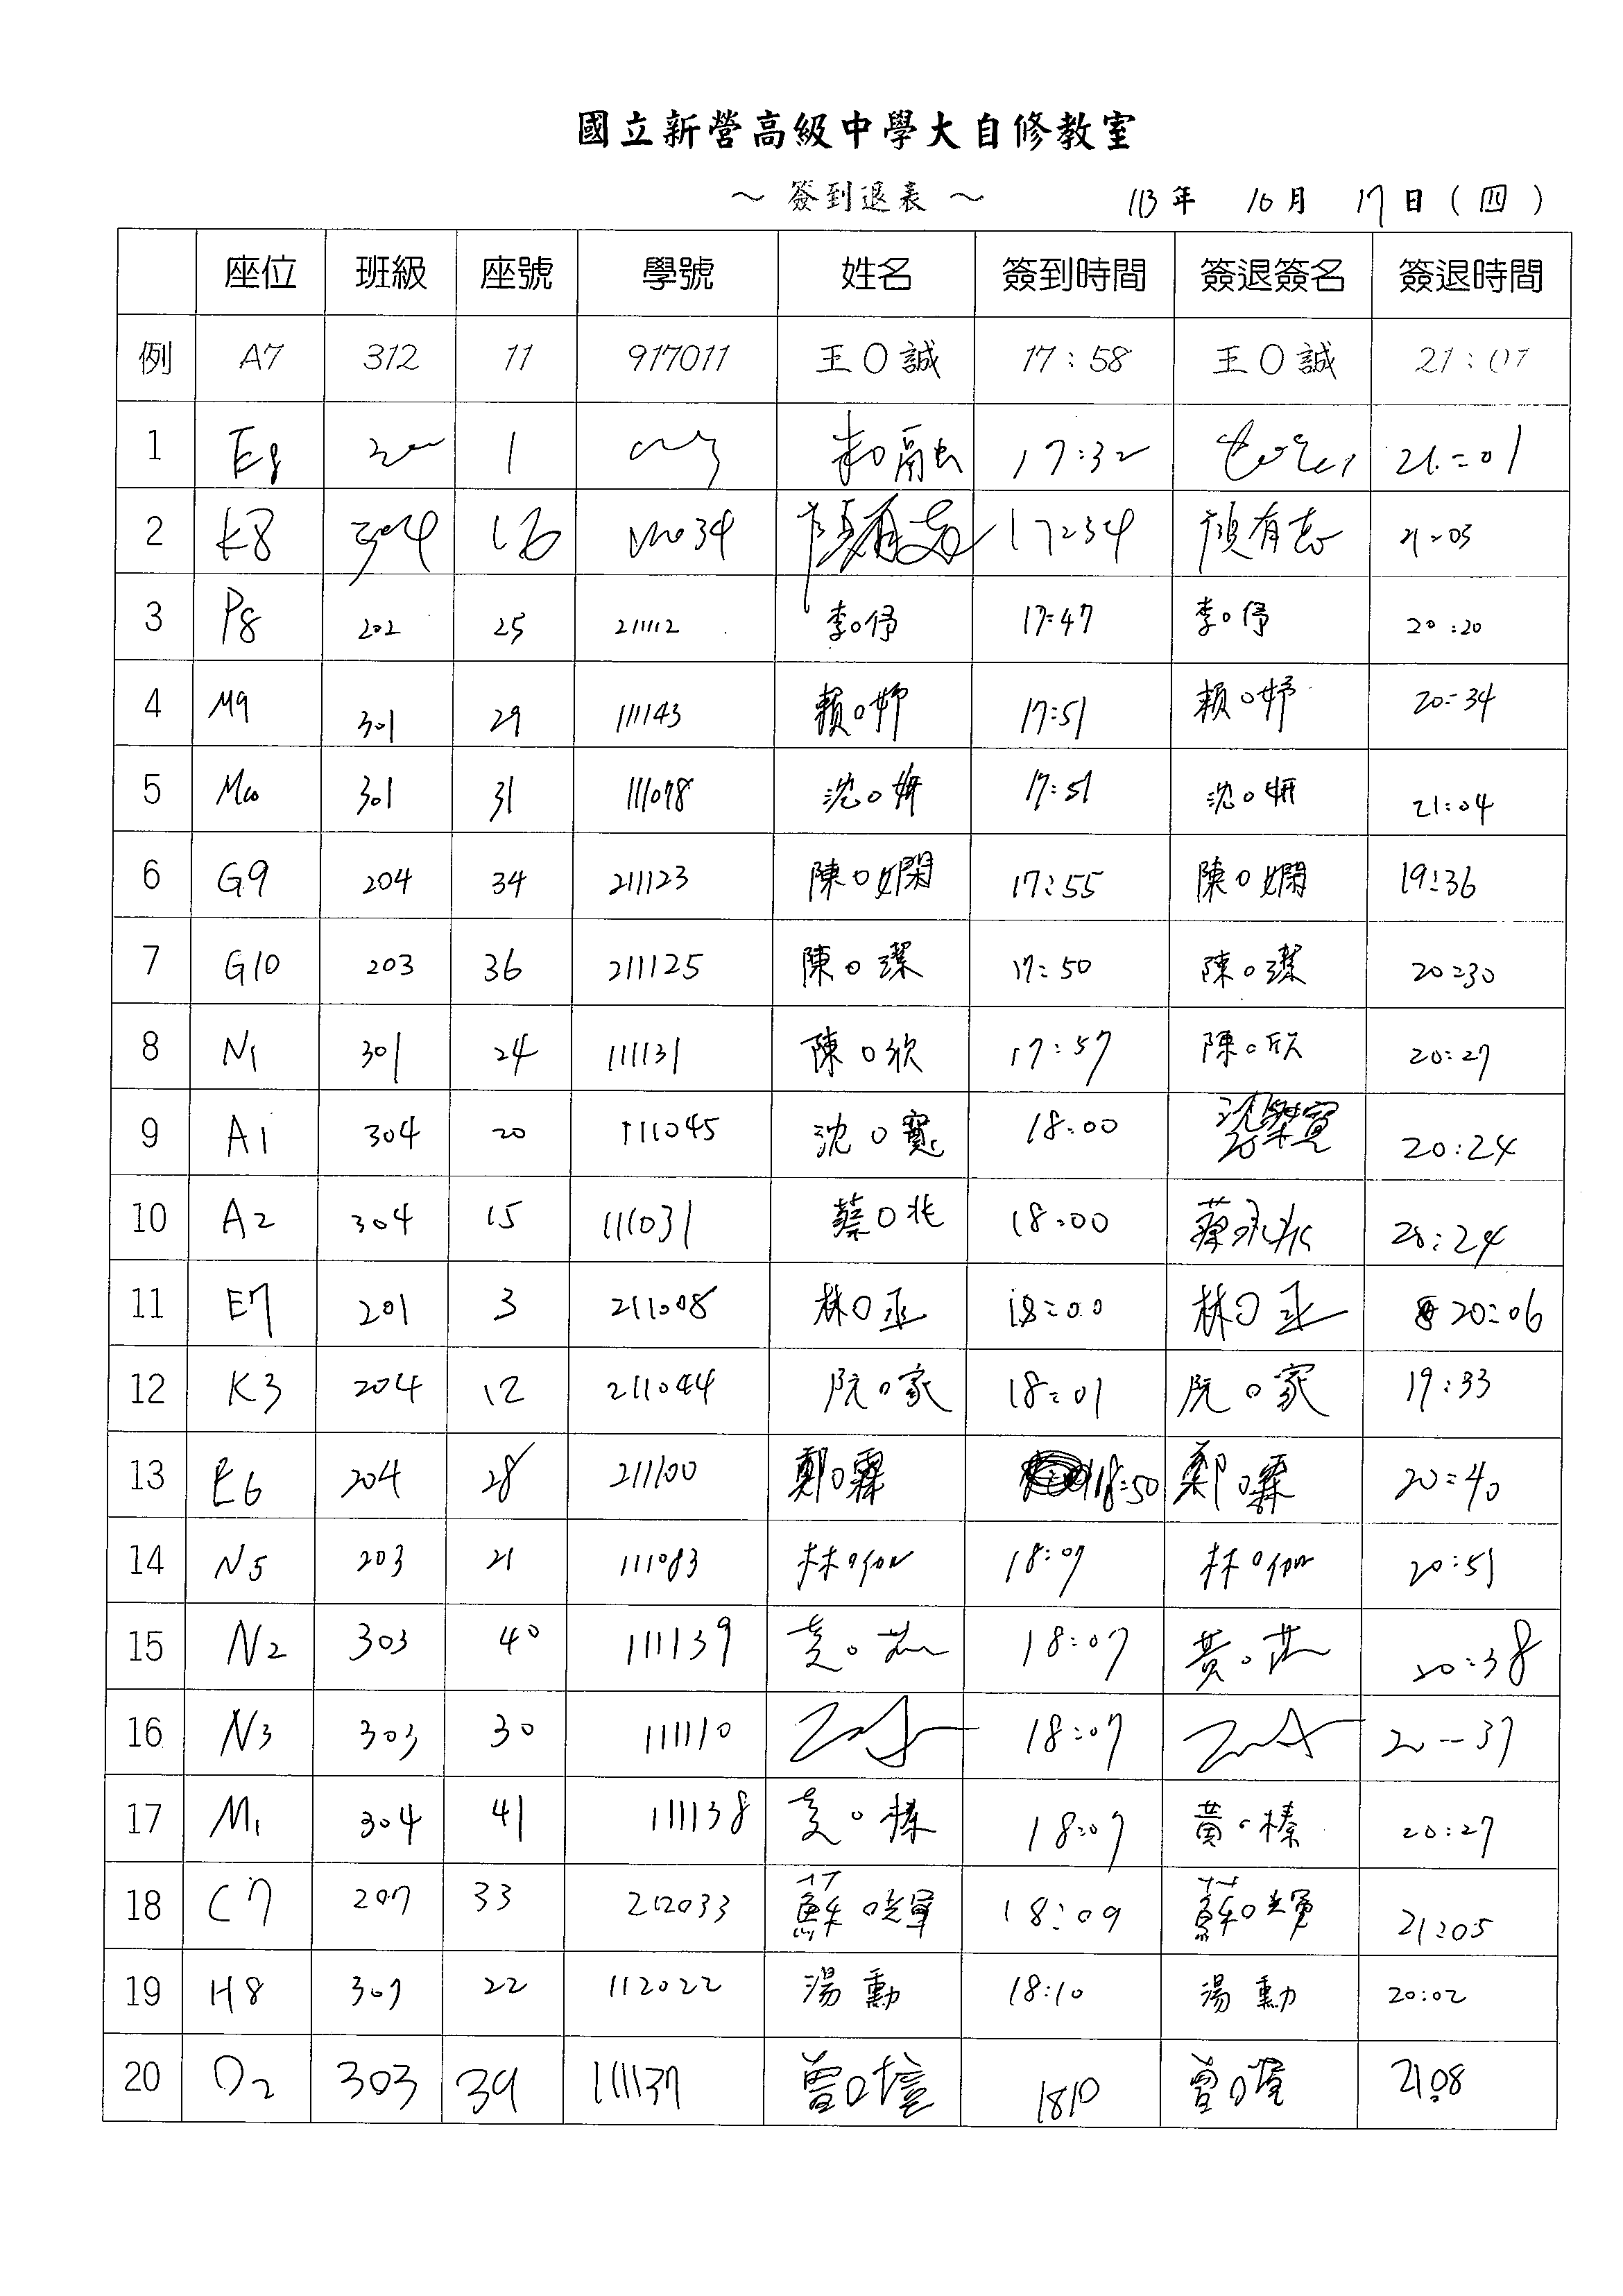 國立新營高級中學大自修教室
～ 簽到退表 ～ 113年 10月 17日(四)
座位 班級 座號 學號 姓名 簽到時間 簽退簽名 簽退時間
例 A7 312 11 917011 王〇誠 17:58 王〇誠 21:01
1 E8 1 17:32 21:01
2 K8 304 16 顏有志 17:34 顏有志 21:05
3 P8 202 25 211112 李〇伃 17:47 李〇伃 20:20
4 M9 301 29 111143 賴〇妤 17:51 賴〇妤 20:34
5 M10 301 31 111098 沈〇妍 17:51 沈〇妍 21:04
6 G9 204 34 211123 陳〇嫻 17:55 陳〇嫻 19:36
7 G10 203 36 211125 陳〇潔 17:50 陳〇潔 20:30
8 N1 301 24 111131 陳〇欣 17:57 陳〇欣 20:27
9 A1 304 20 111045 沈〇寬 18:00 20:24
10 A2 304 15 111031 蔡〇兆 18:00 20:24
11 E7 201 3 211008 林〇丞 18:00 林〇丞 20:06
12 K3 204 12 211044 阮〇家 18:01 阮〇家 19:33
13 E6 204 28 211100 鄭〇霖 18:50 鄭〇霖 20:40
14 N5 203 21 111083 林〇 18:07 林〇 20:51
15 N2 303 40 111139 黃〇 18:07 黃〇 20:38
16 N3 303 30 111110 18:07 20:37
17 M1 304 41 111138 黃〇榛 18:07 黃〇榛 20:27
18 C7 207 33 212033 蘇〇輝 18:09 蘇〇輝 21:05
19 H8 307 22 112022 湯勳 18:10 湯勳 20:02
20 O2 303 39 111137 曾〇瑄 1810 曾〇瑄 21:08